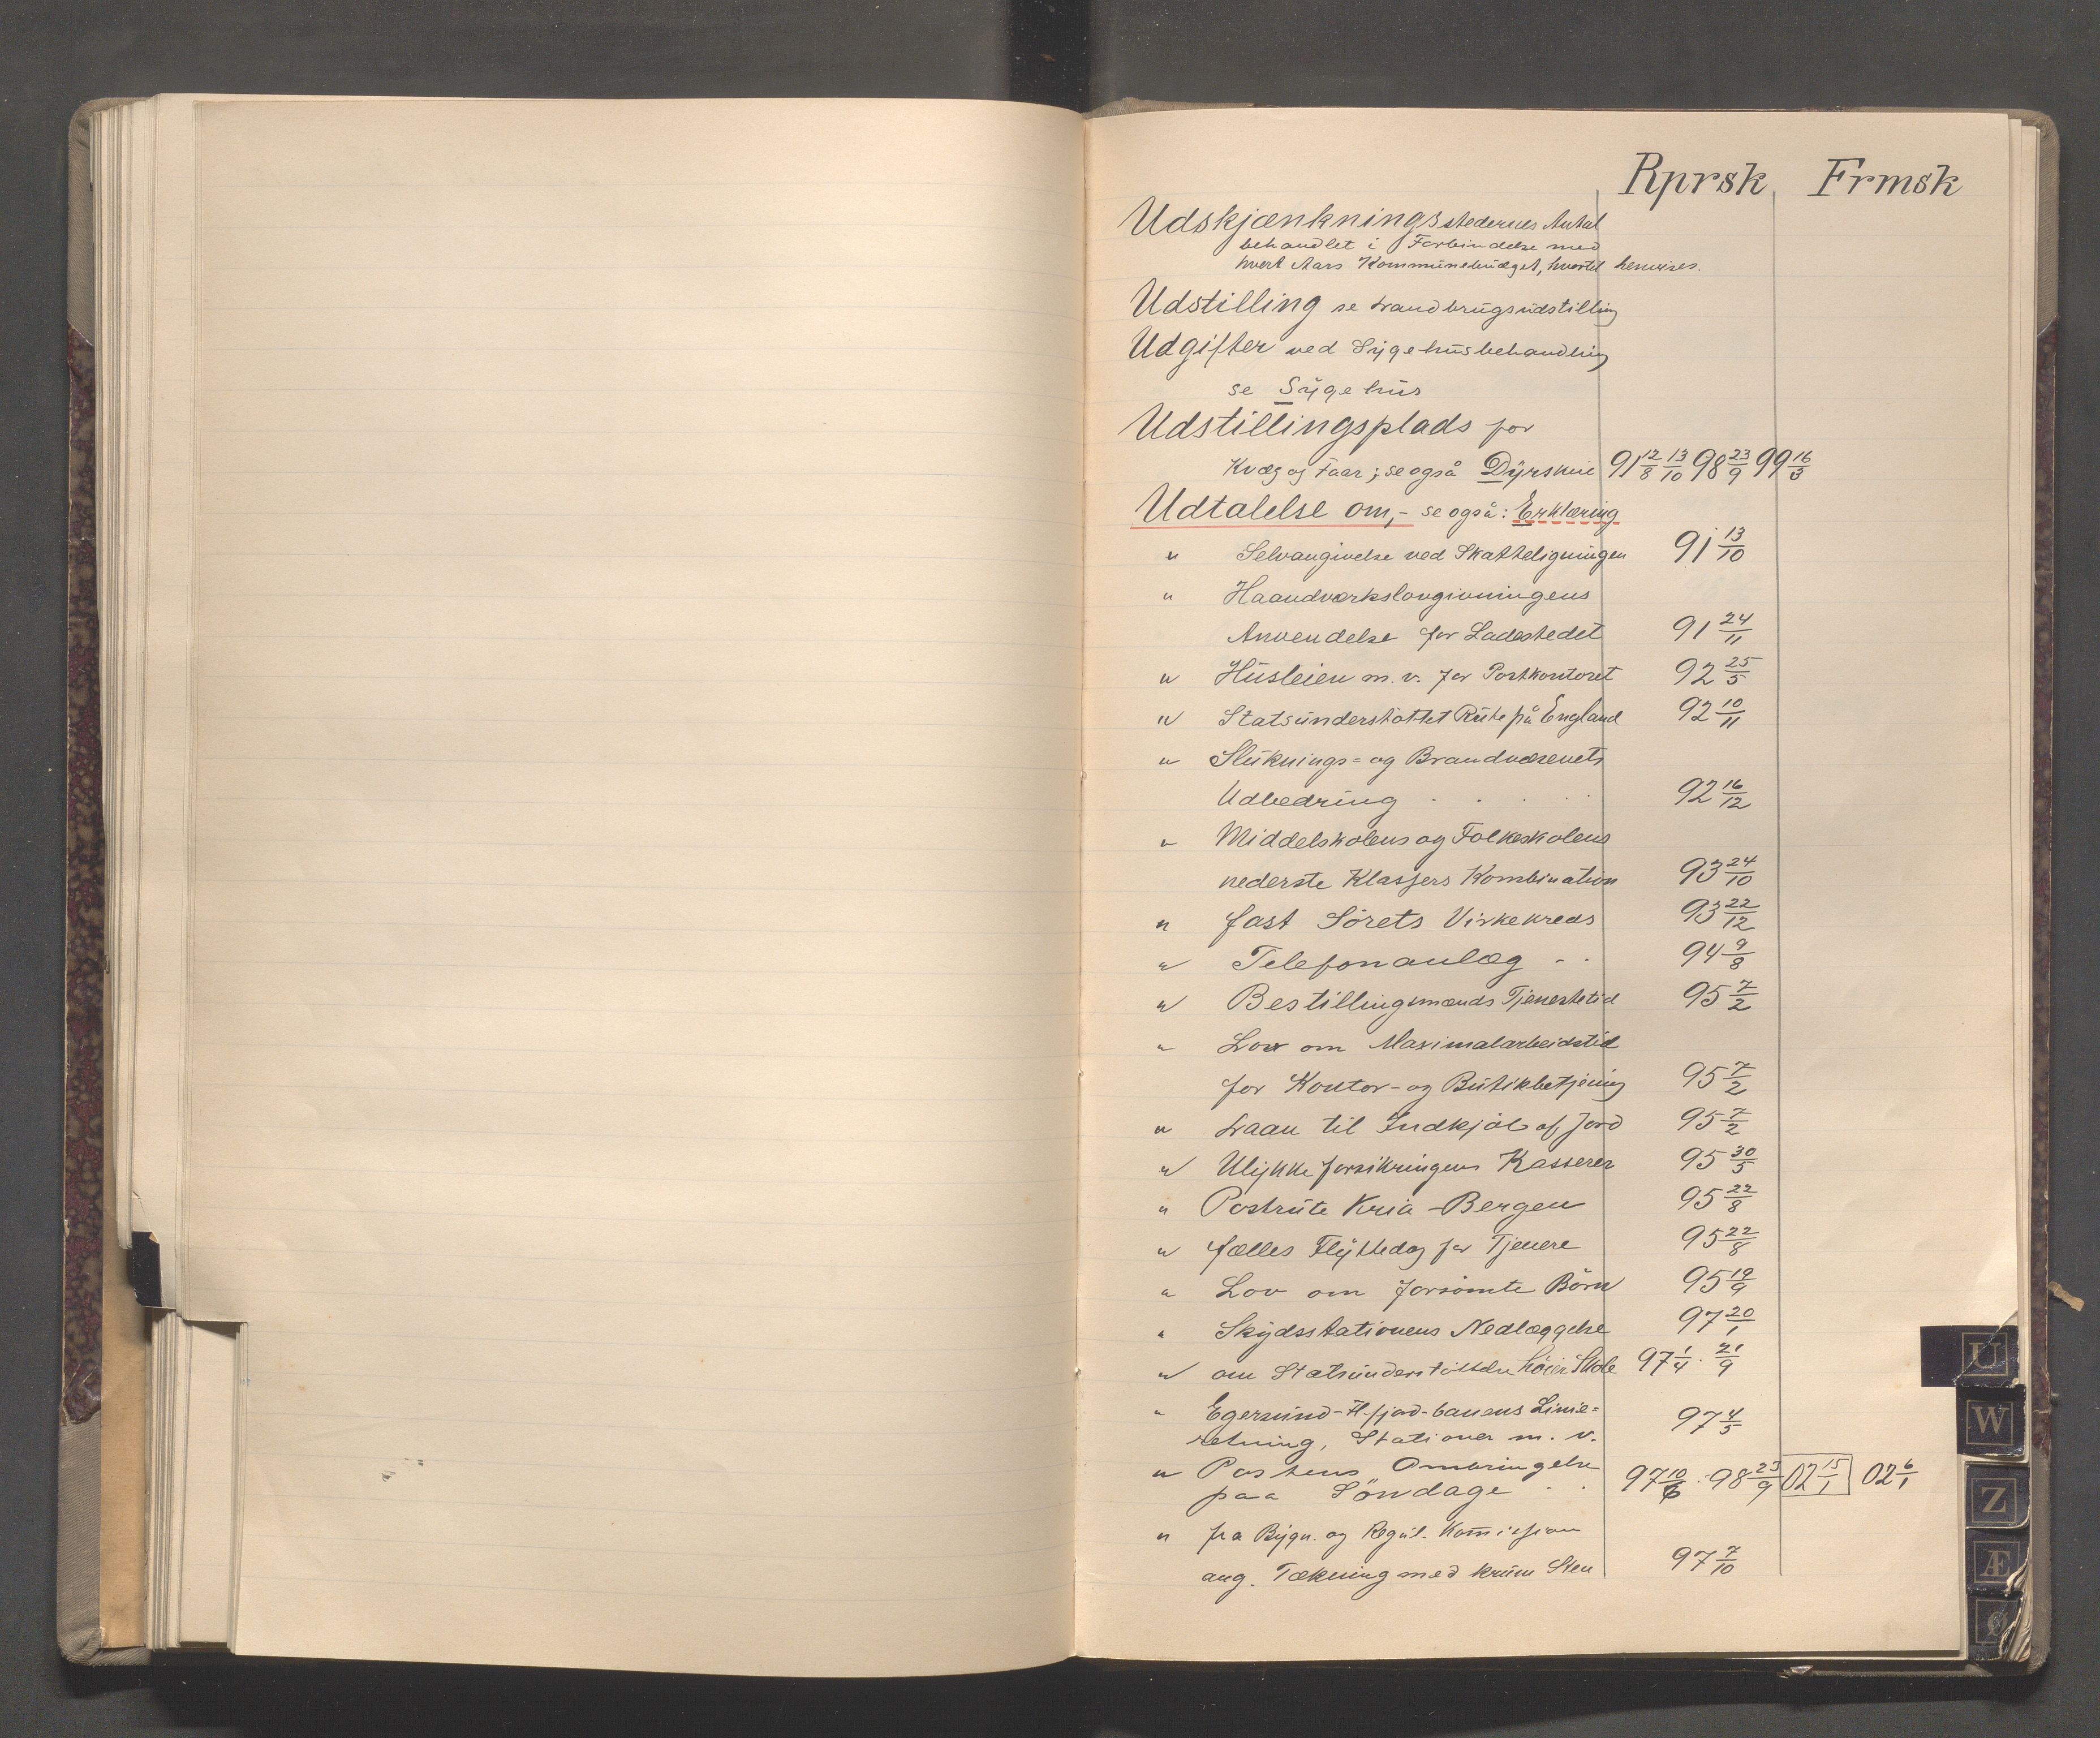 Rprsk Frmsk
Udskjænkningsstedernes Antal
behandlet i Forbindelse med
hvert Aars Kommunebudget, hvortil henvises.
Udstilling se Landbrugsudstilling
Udgifter ved Sygehusbehandling
se Sygehus
Udstillingsplads for
Kvæg og Faar; se også Dyrskue 91 12/8 13/10 98 23/9 99 16/3
Udtalelse om,- se også: Erklæring
" Selvangivelse ved Skatteligningen 91 13/10
" Haandværkslovgivningens
Anvendelse for Ladestedet 91 24/11
" Husleien m.v. for Postkontoret 92 25/5
" Statsunderstøttet Rute på England 92 10/11
" Sluknings= og Brandvæsenets
Udbedring . . . . 92 16/12
" Middelskolens og Folkeskolens
nederste Klassers Kombination 93 24/10
" fast Sörets Virkekreds 93 22/12
" Telefonanlæg - . 94 9/8
" Bestillingsmænds Tjenestetid 95 7/2
" Lov om Maximalarbeidstid
for Kontor- og Butikbetjening 95 7/2
" Laan til Indkjøb af Jord 95 7/2
" Ulykkeforsikringens Kasserer 95 30/5
" Postrute Kria - Bergen 95 22/8
" fælles Flyttedag for Tjenere 95 22/8
" Lov om forsömte Börn 95 19/9
" Skydsstationens Nedlæggelse 97 20/1
" om Statsunderstöttelse höier Skole 97 1/4 . 21/9
" Egersund-Ft.fjord-banens Linie=
retning, Stationer m. v. 97 4/5
" Postens Ombringelse
paa Söndage . . 97 10/6 . 98 23/9 02 15/1 02 6/1
" fra Bygn. og Regul. Komission
ang. Tækning med krum Sten 97 7/10
U
W
Z
Æ
Ø